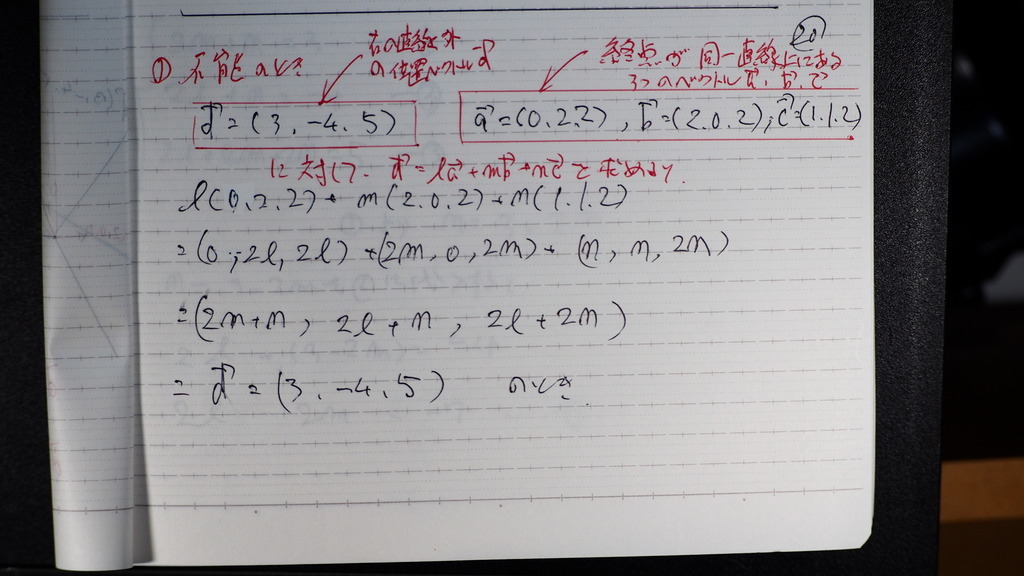 20
① 不能のとき
右の直線外
の位置ベクトル d⃗
終点が同一直線上にある
3つのベクトル a⃗, b⃗, c⃗
d⃗ = (3, -4, 5)
a⃗ = (0, 2, 2), b⃗ = (2, 0, 2), c⃗ = (1, 1, 2)
に対して、d⃗ = la⃗ + mb⃗ + nc⃗ を求めよ
l(0, 2, 2) + m(2, 0, 2) + n(1, 1, 2)
= (0, 2l, 2l) + (2m, 0, 2m) + (n, n, 2n)
= (2m+n, 2l+n, 2l+2m)
= d⃗ = (3, -4, 5) のとき